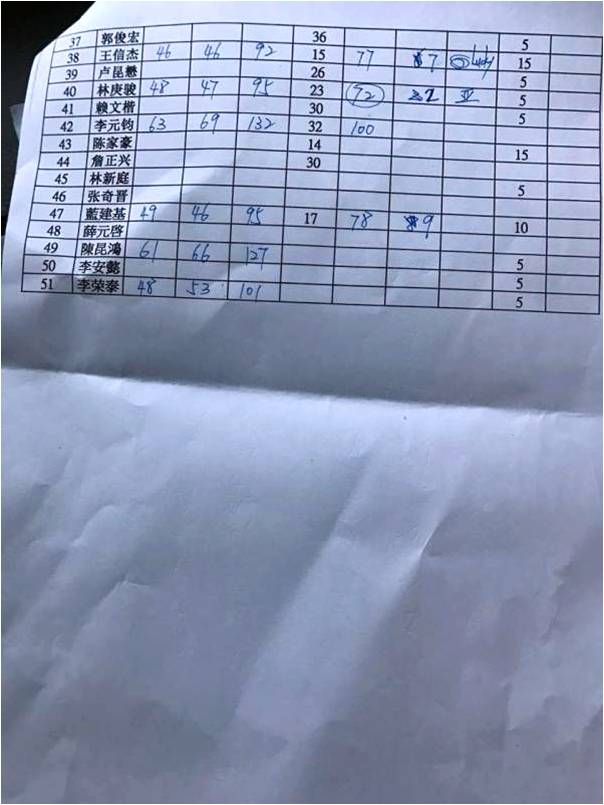 37 郭俊宏 36 5
38 王信杰 46 46 92 15 77 7 15
39 卢昆懋 26 5
40 林庚骏 48 47 95 23 72 2 亚 5
41 赖文楷 30 5
42 李元钧 63 69 132 32 100
43 陈家豪 14 15
44 詹正兴 30
45 林新庭 5
46 张奇晋
47 藍建基 49 46 95 17 78 9 10
48 薛元啓
49 陳昆鴻 61 66 127 5
50 李安懿 5
51 李荣泰 48 53 101 5